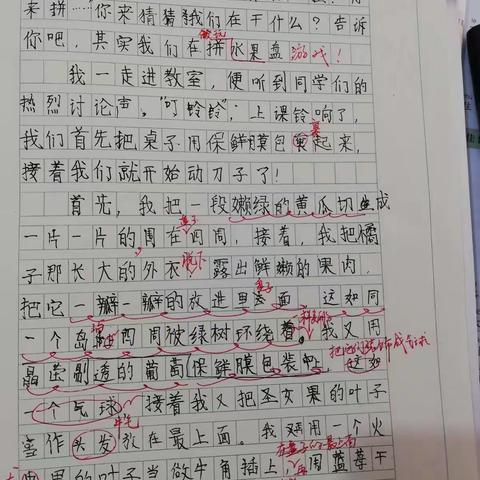 来拼…"你来猜猜我们在干什么？告诉
你吧，其实我们在拼水果盘游戏！
我一走进教室，便听到同学们的
热烈讨论声。"叮铃铃"，上课铃响了，
我们首先把桌子用保鲜膜包裹起来，
接着我们就开始动刀子了！
首先，我把一段嫩绿的黄瓜切成
盘子
一片一片的，围在四周，接着，我把橘
子那长大的外衣脱下 露出鲜嫩的果肉，
盘子
把它一瓣一瓣的放进里面 这如同
一个岛四周被绿树环绕着。我又用
晶莹剔透的葡萄保鲜膜包装 这如
一个气球 接着我又把圣女果的叶子
当作头发放在最上面。我用一个火
里的叶子当做牛角插上，再用蓝莓干